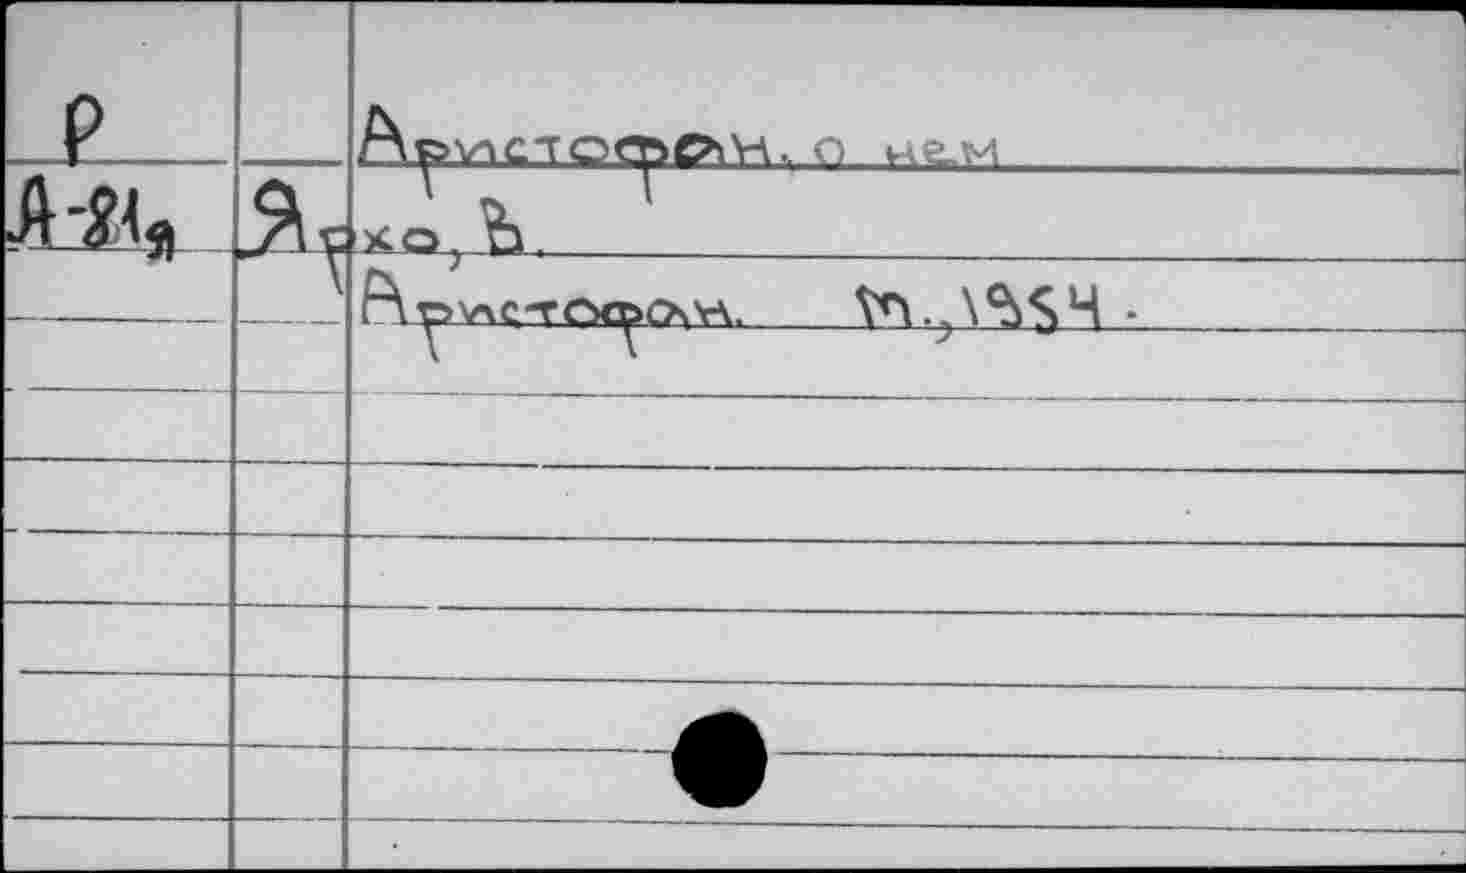 Р Аристофан, о нем
Я-21я Ярхо, В.
Аристофан. М., 1954.